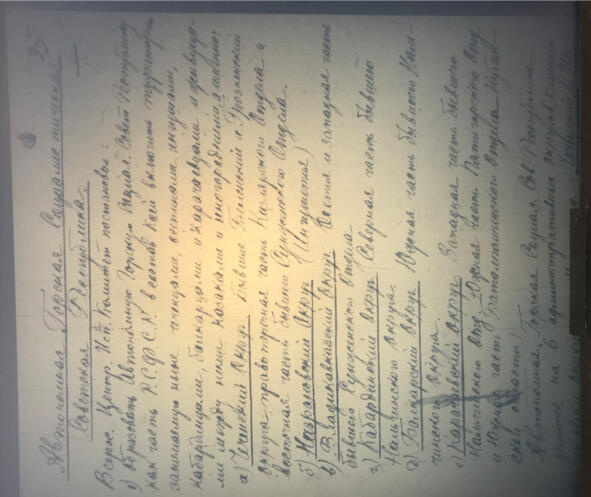 35
Автономная Горская Социалистическая
Советская Республика.
Всерос. Центр. Исп. Комитет постановил:
1) образовать Автономную Горскую Социал. Совет. Республику
как часть Р.С.Ф.С.Р. в состав коей включить территорию,
занимаемую ныне чеченцами, осетинами, ингушами,
кабардинцами, балкарцами и карачаевцами и живущи-
ми между ними казаками и иногородними, а именно:
а) Чеченский Округ бывшие Веденский и Грозненский
округа, правобережная часть Кизлярского Отдела и
восточная часть бывшего Сунженского Отдела.
б) Назрановский Округ (Ингушетия)
в) Владикавказский округ Осетия и западная часть
бывшего Сунженского отдела
г) Кабардинский округ (Северная часть бывшего
Нальчинского округа.
д) Балкарский округ Южная часть бывшего Наль-
чинского округа.
е) Карачаевский округ Западная часть бывшего
Нальчинского отд. Южная часть Пятигорского отд.
и Южная часть Баталпашинского Отдела Кубан-
ской области)
Автономная Горская Социал Сов. Республика
на 6 административных округов